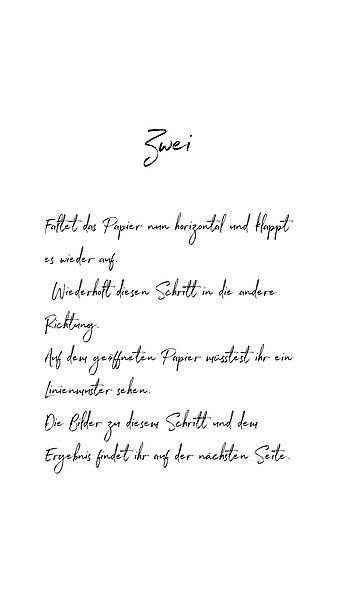 Zwei
Faltet das Papier nun horizontal und klappt
es wieder auf.
Wiederholt diesen Schritt in die andere
Richtung.
Auf dem geöffneten Papier müsstest ihr ein
Linienmuster sehen.
Die Bilder zu diesem Schritt und dem
Ergebnis findet ihr auf der nächsten Seite.